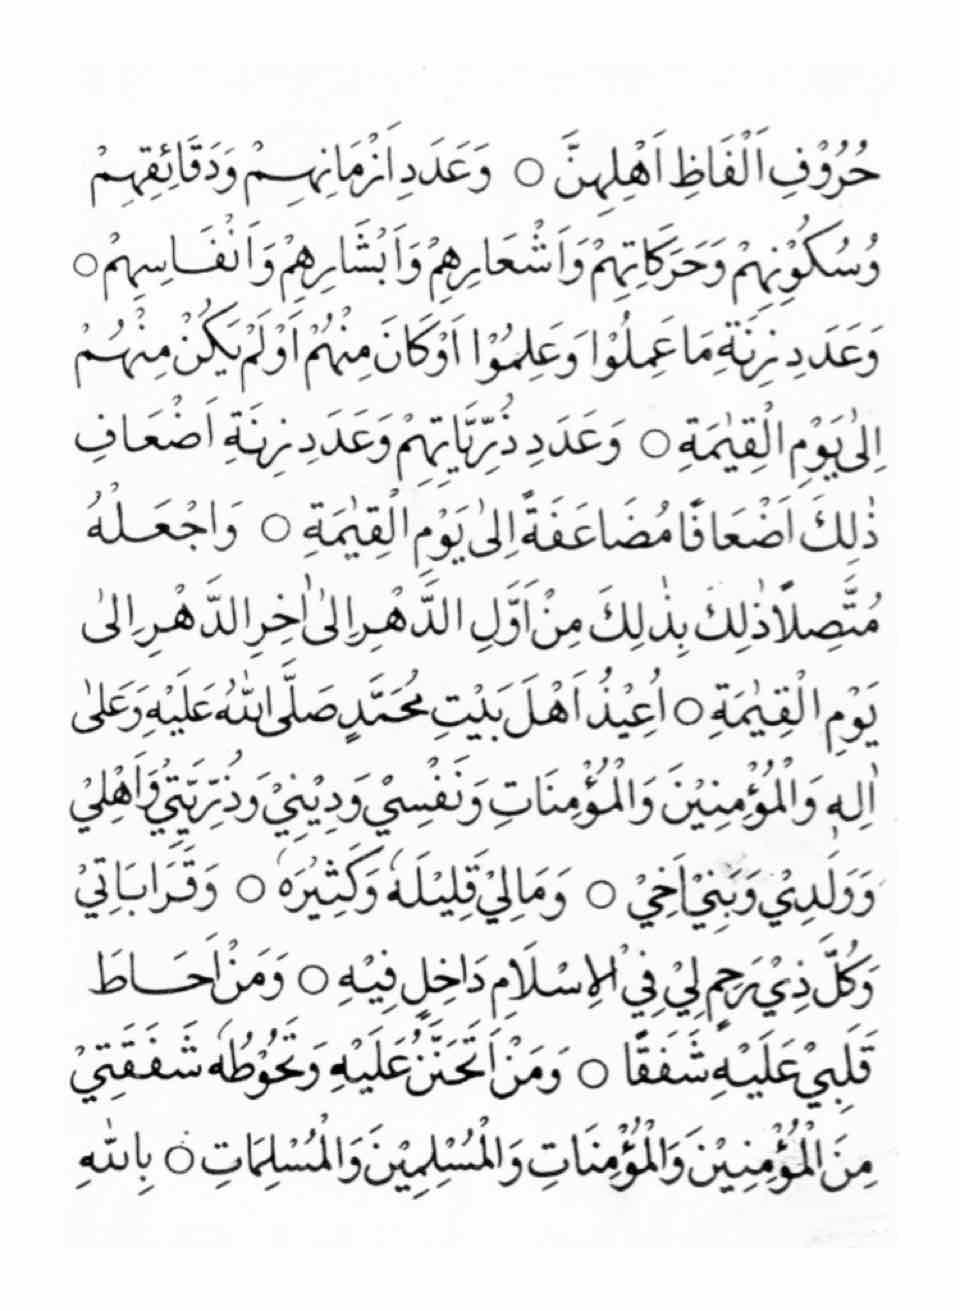 حُرُوْفِ اَلْفَاظِ اَهْلِهِنَّ ○ وَعَدَدِ اَزْمَانِهِمْ وَدَقَائِقِهِمْ
وُسُكُوْنِهِمْ وَحَرَكَاتِهِمْ وَاَشْعَارِهِمْ وَاَبْشَارِهِمْ وَاَنْفَاسِهِمْ ○
وَعَدَدِ زِنَةِ مَا عَمِلُوْا وَعَلِمُوْا اَوْكَانَ مِنْهُمْ اَوْلَمْ يَكُنْ مِنْهُمْ
اِلىٰ يَوْمِ الْقِيٰمَةِ ○ وَعَدَدِ ذُرِّيَّاتِهِمْ وَعَدَدِ زِنَةِ اَضْعَافِ
ذٰلِكَ اَضْعَافًا مُضَاعَفَةً اِلىٰ يَوْمِ الْقِيٰمَةِ ○ وَاجْعَلْهُ
مُتَّصِلًا ذٰلِكَ بِذٰلِكَ مِنْ اَوَّلِ الدَّهْرِ اِلىٰ اٰخِرِ الدَّهْرِ اِلىٰ
يَوْمِ الْقِيٰمَةِ ○ اُعِيْذُ اَهْلَ بَيْتِ مُحَمَّدٍ صَلَّى اللهُ عَلَيْهِ وَعَلىٰ
اٰلِهٖ وَالْمُؤْمِنِيْنَ وَالْمُؤْمِنَاتِ وَنَفْسِيْ وَدِيْنِيْ وَذُرِّيَّتِيْ وَاَهْلِيْ
وَوَلَدِيْ وَبَنِيْ اَخِيْ ○ وَمَالِيْ قَلِيْلَهٗ وَكَثِيْرَهٗ ○ وَقَرَابَاتِيْ
وَكُلَّ ذِيْ رَحِمٍ لِيْ فِيْ الْاِسْلَامِ دَاخِلٍ فِيْهِ ○ وَمَنْ اَحَاطَ
قَلْبِيْ عَلَيْهِ شَفَقًا ○ وَمَنْ اَتَحَنَّنُ عَلَيْهِ وَتَحُوْطُهٗ شَفَقَتِيْ
مِنَ الْمُؤْمِنِيْنَ وَالْمُؤْمِنَاتِ وَالْمُسْلِمِيْنَ وَالْمُسْلِمَاتِ ○ بِاللهِ